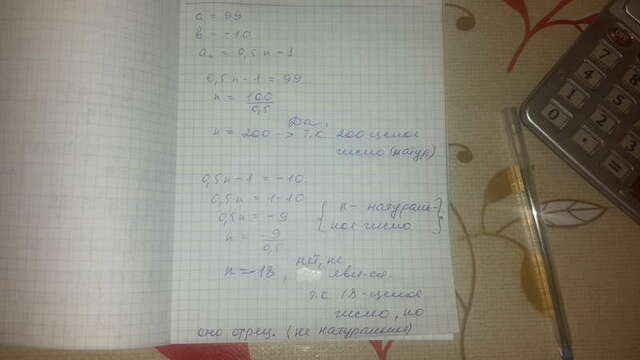 a = 99
b = -10
aₙ = 0,5n - 1
0,5n - 1 = 99
n = 100/0,5
Да,
n = 200 -> т.к. 200 целое
число (натур)
0,5n - 1 = -10.
0,5n = 1 - 10
0,5n = -9
n = -9/0,5
{ n - натураль-
ное число }
n = -18, нет, не
явл-ся.
т.к 18 - целое
число, но
оно отриц. (не натуральное)
7
4 5
1 2 3
0 . =